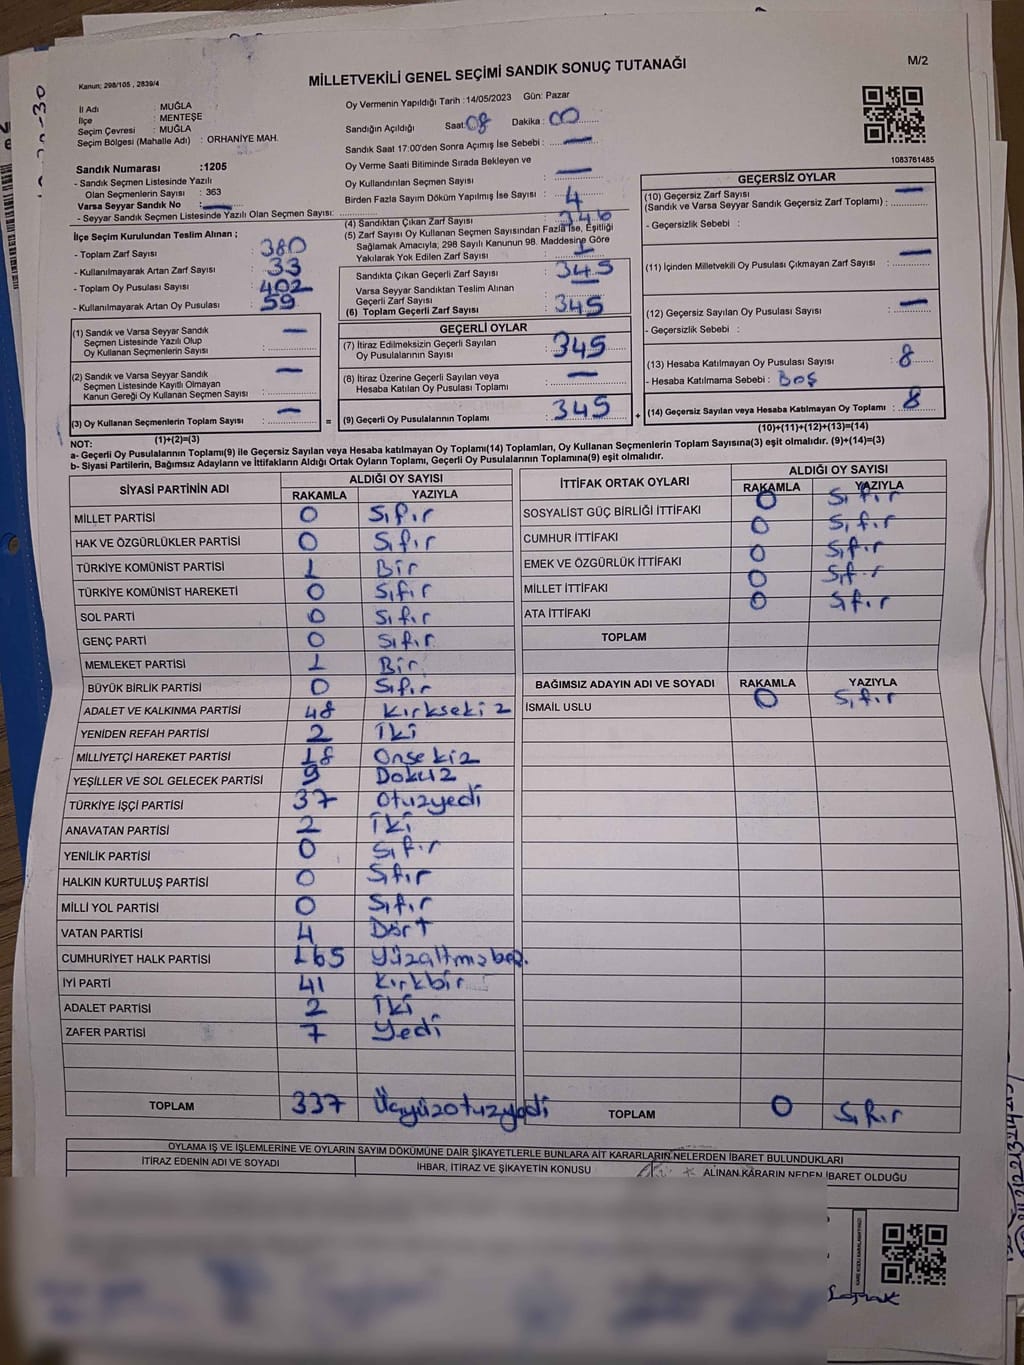 MİLLETVEKİLİ GENEL SEÇİMİ SANDIK SONUÇ TUTANAĞI
M/2
Kanun; 298/105 , 2839/4
İl Adı : MUĞLA
İlçe : MENTEŞE
Seçim Çevresi : MUĞLA
Seçim Bölgesi (Mahalle Adı) : ORHANİYE MAH.
Oy Vermenin Yapıldığı Tarih : 14/05/2023 Gün: Pazar
Sandığın Açıldığı Saat: 08 Dakika : 00
Sandık Saat 17:00'den Sonra Açımış İse Sebebi : —
Oy Verme Saati Bitiminde Sırada Bekleyen ve
Oy Kullandırılan Seçmen Sayısı —
Birden Fazla Sayım Döküm Yapılmış İse Sayısı : 4
1083761485
Sandık Numarası :1205
- Sandık Seçmen Listesinde Yazılı
Olan Seçmenlerin Sayısı : 363
Varsa Seyyar Sandık No : —
- Seyyar Sandık Seçmen Listesinde Yazılı Olan Seçmen Sayısı:
İlçe Seçim Kurulundan Teslim Alınan ;
- Toplam Zarf Sayısı : 380
- Kullanılmayarak Artan Zarf Sayısı : 33
- Toplam Oy Pusulası Sayısı : 402
- Kullanılmayarak Artan Oy Pusulası : 59
(1) Sandık ve Varsa Seyyar Sandık
Seçmen Listesinde Yazılı Olup
Oy Kullanan Seçmenlerin Sayısı : —
(2) Sandık ve Varsa Seyyar Sandık
Seçmen Listesinde Kayıtlı Olmayan
Kanun Gereği Oy Kullanan Seçmen Sayısı : —
(3) Oy Kullanan Seçmenlerin Toplam Sayısı : —
=
(4) Sandıktan Çıkan Zarf Sayısı : 346
(5) Zarf Sayısı Oy Kullanan Seçmen Sayısından Fazla İse, Eşitliği
Sağlamak Amacıyla, 298 Sayılı Kanunun 98. Maddesine Göre
Yakılarak Yok Edilen Zarf Sayısı : 1
Sandıkta Çıkan Geçerli Zarf Sayısı : 345
Varsa Seyyar Sandıktan Teslim Alınan
Geçerli Zarf Sayısı : —
(6) Toplam Geçerli Zarf Sayısı : 345
GEÇERLİ OYLAR
(7) İtiraz Edilmeksizin Geçerli Sayılan
Oy Pusulalarının Sayısı : 345
(8) İtiraz Üzerine Geçerli Sayılan veya
Hesaba Katılan Oy Pusulası Toplamı : —
(9) Geçerli Oy Pusulalarının Toplamı : 345
+
GEÇERSİZ OYLAR
(10) Geçersiz Zarf Sayısı
(Sandık ve Varsa Seyyar Sandık Geçersiz Zarf Toplamı) : —
- Geçersizlik Sebebi :
(11) İçinden Milletvekili Oy Pusulası Çıkmayan Zarf Sayısı : —
(12) Geçersiz Sayılan Oy Pusulası Sayısı : —
- Geçersizlik Sebebi :
(13) Hesaba Katılmayan Oy Pusulası Sayısı : 8
- Hesaba Katılmama Sebebi : BOŞ
(14) Geçersiz Sayılan veya Hesaba Katılmayan Oy Toplamı : 8
(10)+(11)+(12)+(13)=(14)
(1)+(2)=(3)
NOT:
a- Geçerli Oy Pusulalarının Toplamı(9) ile Geçersiz Sayılan veya Hesaba katılmayan Oy Toplamı(14) Toplamları, Oy Kullanan Seçmenlerin Toplam Sayısına(3) eşit olmalıdır. (9)+(14)=(3)
b- Siyasi Partilerin, Bağımsız Adayların ve İttifakların Aldığı Ortak Oyların Toplamı, Geçerli Oy Pusulalarının Toplamına(9) eşit olmalıdır.
SİYASİ PARTİNİN ADI ALDIĞI OY SAYISI
RAKAMLA YAZIYLA
MİLLET PARTİSİ 0 Sıfır
HAK VE ÖZGÜRLÜKLER PARTİSİ 0 Sıfır
TÜRKİYE KOMÜNİST PARTİSİ 1 Bir
TÜRKİYE KOMÜNİST HAREKETİ 0 Sıfır
SOL PARTİ 0 Sıfır
GENÇ PARTİ 0 Sıfır
MEMLEKET PARTİSİ 1 Bir
BÜYÜK BİRLİK PARTİSİ 0 Sıfır
ADALET VE KALKINMA PARTİSİ 48 Kırksekiz
YENİDEN REFAH PARTİSİ 2 İki
MİLLİYETÇİ HAREKET PARTİSİ 18 Onsekiz
YEŞİLLER VE SOL GELECEK PARTİSİ 9 Dokuz
TÜRKİYE İŞÇİ PARTİSİ 37 Otuzyedi
ANAVATAN PARTİSİ 2 İki
YENİLİK PARTİSİ 0 Sıfır
HALKIN KURTULUŞ PARTİSİ 0 Sıfır
MİLLİ YOL PARTİSİ 0 Sıfır
VATAN PARTİSİ 4 Dört
CUMHURİYET HALK PARTİSİ 165 Yüzaltmışbeş.
İYİ PARTİ 41 Kırkbir
ADALET PARTİSİ 2 İki
ZAFER PARTİSİ 7 Yedi
TOPLAM 337 Üçyüzotuzyedi
İTTİFAK ORTAK OYLARI ALDIĞI OY SAYISI
RAKAMLA YAZIYLA
SOSYALİST GÜÇ BİRLİĞİ İTTİFAKI 0 Sıfır
CUMHUR İTTİFAKI 0 Sıfır
EMEK VE ÖZGÜRLÜK İTTİFAKI 0 Sıfır
MİLLET İTTİFAKI 0 Sıfır
ATA İTTİFAKI 0 Sıfır
TOPLAM
BAĞIMSIZ ADAYIN ADI VE SOYADI RAKAMLA YAZIYLA
İSMAİL USLU 0 Sıfır
TOPLAM 0 Sıfır
OYLAMA İŞ VE İŞLEMLERİNE VE OYLARIN SAYIM DÖKÜMÜNE DAİR ŞİKAYETLERLE BUNLARA AİT KARARLARIN NELERDEN İBARET BULUNDUKLARI
İTİRAZ EDENİN ADI VE SOYADI İHBAR, İTİRAZ VE ŞİKAYETİN KONUSU ALINAN KARARIN NEDEN İBARET OLDUĞU